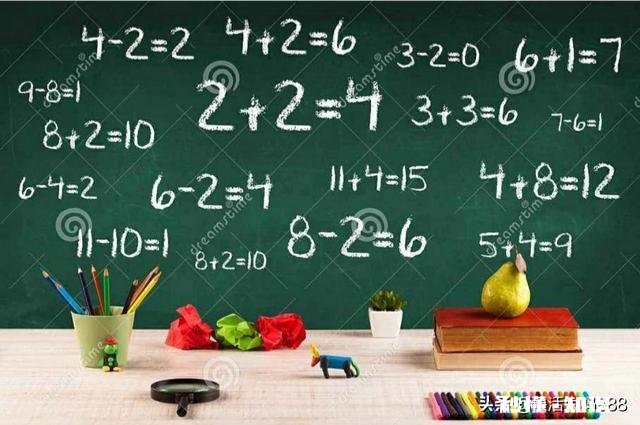 4-2=2
4+2=6
3-2=0
6+1=7
9-8=1
2+2=4
3+3=6
7-6=1
8+2=10
6-4=2
6-2=4
11+4=15
4+8=12
11-10=1
8+2=10
8-2=6
5+4=9
dreamstime